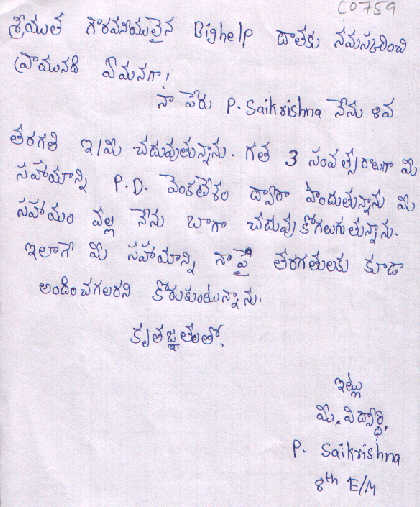 C0759
శ్రీయుత గౌరవనీయులైన Bighelp దాతకు నమస్కరించి
వ్రాయునది ఏమనగా!
నా పేరు P. Saikrishna నేను 8వ
తరగతి ఇ/మీ చదువుతున్నాను. గత 3 సంవత్సరాలుగా మీ
సహాయాన్ని P.D. వెంకటేశం ద్వారా పొందుతున్నాను మీ
సహాయం వల్ల నేను బాగా చదువుకోగలుగుతున్నాను.
ఇలాగే మీ సహాయాన్ని నా పై తరగతులకు కూడా
అందించగలరని కోరుకుంటున్నాను.
కృతజ్ఞతలతో.
ఇట్లు
మీ విద్యార్థి,
P. Saikrishna
8th E/M